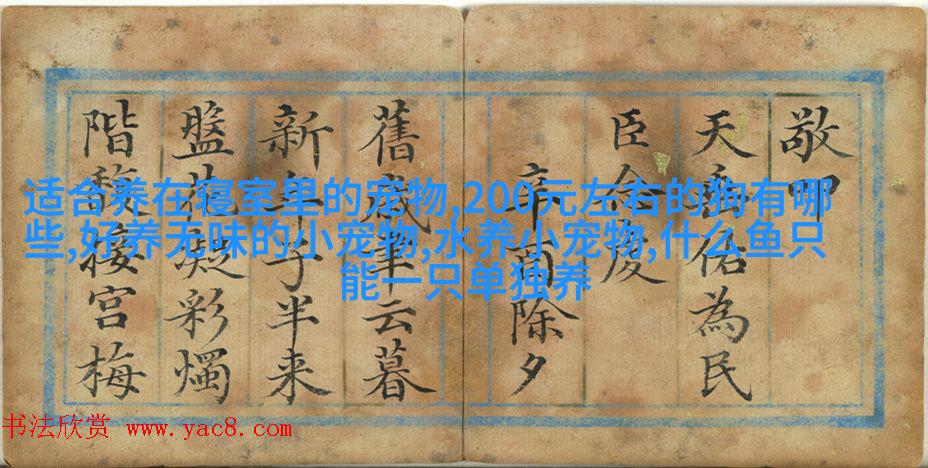 敬叩
天垂佑為民
臣
除夕
舊歲聿云暮
新年子半来
盤花凝彩燭
階馥接宮梅
适合养在寝室里的宠物,200元左右的狗有哪
些,好养无味的小宠物,水养小宠物,什么鱼只
能一只单独养
书法欣赏 www.yac8.com